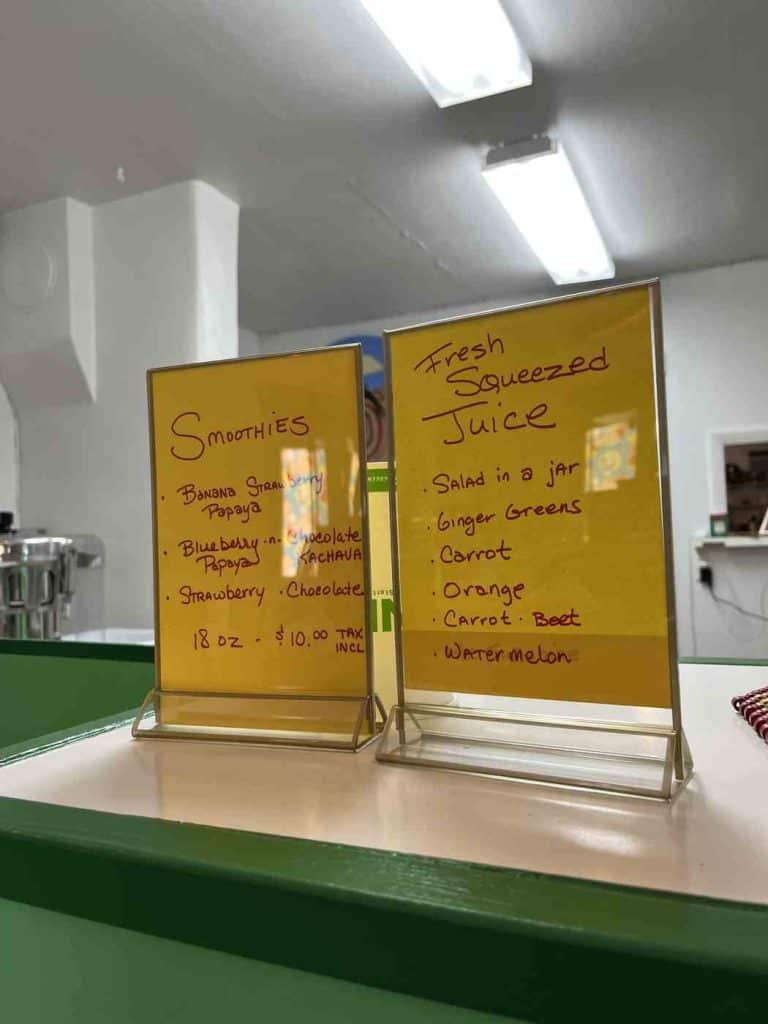 Smoothies
· Banana Strawberry
Papaya
· Blueberry · n · Chocolate
Papaya KACHAVA
· Strawberry · Chocolate
18 oz - $10.00 TAX
INCL
Fresh
Squeezed
Juice
· Salad in a jar
· Ginger Greens
· Carrot
· Orange
· Carrot · Beet
· Watermelon